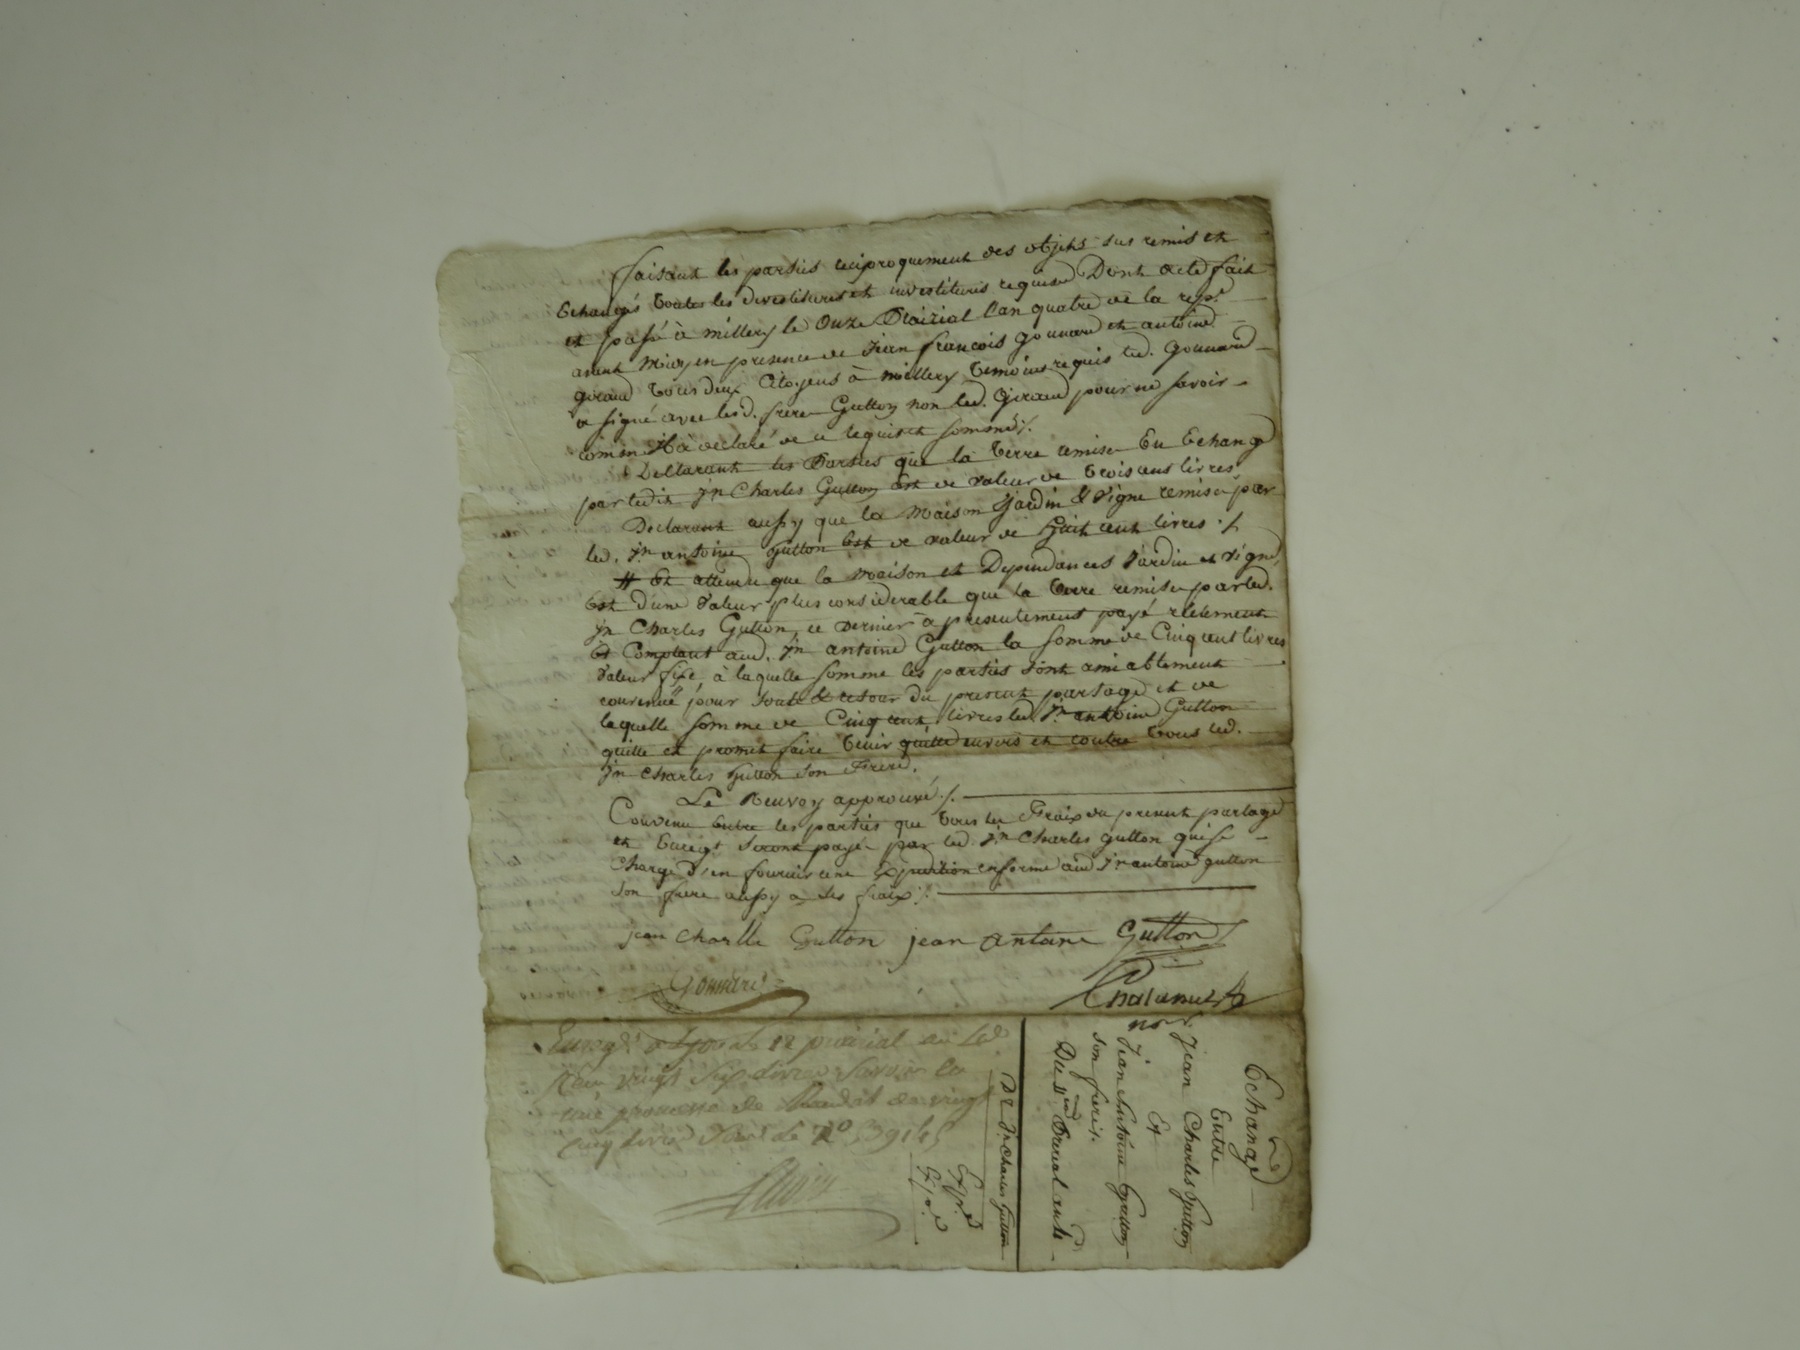 faisant les parties reciproquement des objets sus remis et
Echangés toutes les devestitures et investitures requise Dont acte fait
et passé à millery le Onze Prairial L'an quatre de la rep.e
avant Midy en presence de Jean François gonnard et antoine
giraud tous deux Citoyens à millery temoins requis led. gonnard
a signé avec lesd. freres Gutton non led. Giraud pour ne savoir
comme Il à declaré de ce requis et sommé ./.
Declarant les Parties que la terre remise En Echange
par ledit jn Charles Gutton Est de valeur de trois cent livres
Declarant aussy que la Maison Jardin & vigne remise par
led. jn antoine Gutton Est de valeur de huit cent livres ./.
# Et attendu que la maison et Dependances Jardin et vigne
Est d'une valeur plus considerable que la terre remise par led.
jn Charles Gutton, ce dernier à presentement payé réelement
Et Comptant aud. jn antoine Gutton la somme de Cinq cent livres
valeur fixe, à laquelle somme les parties sont amiablement
convenue pour soute & retour du present partage et de
laquelle somme de Cinq cent livres led. jn antoine Gutton
quitte et promet faire tenir quitte envers et contre tous led.
jn Charles Gutton son Frere.
Le Renvoy approuvé ./.
Convenu Entre les parties que tous les Fraix du present partage
et Enregt seront payé par led. jn Charles gutton qui se
Charge d'en fournir une Expedition en forme aud jn antoine gutton
son frere aussy a ses fraix ./.
jean Charlle Gutton jean Antoine Gutton
Gonnard
Chalamel
nore.
Enregt. à Lyon le 12 prairial an 4e
Reçu vingt six livres savoir la
une promesse de Mandat de vingt
cinq livres
Echange
Entre
Jean Charles Gutton
Et
Jean Antoine Gutton
son frere.
Du 11 Prairial an 4e
Pr Jn Charles Gutton
Expéd
Expéd